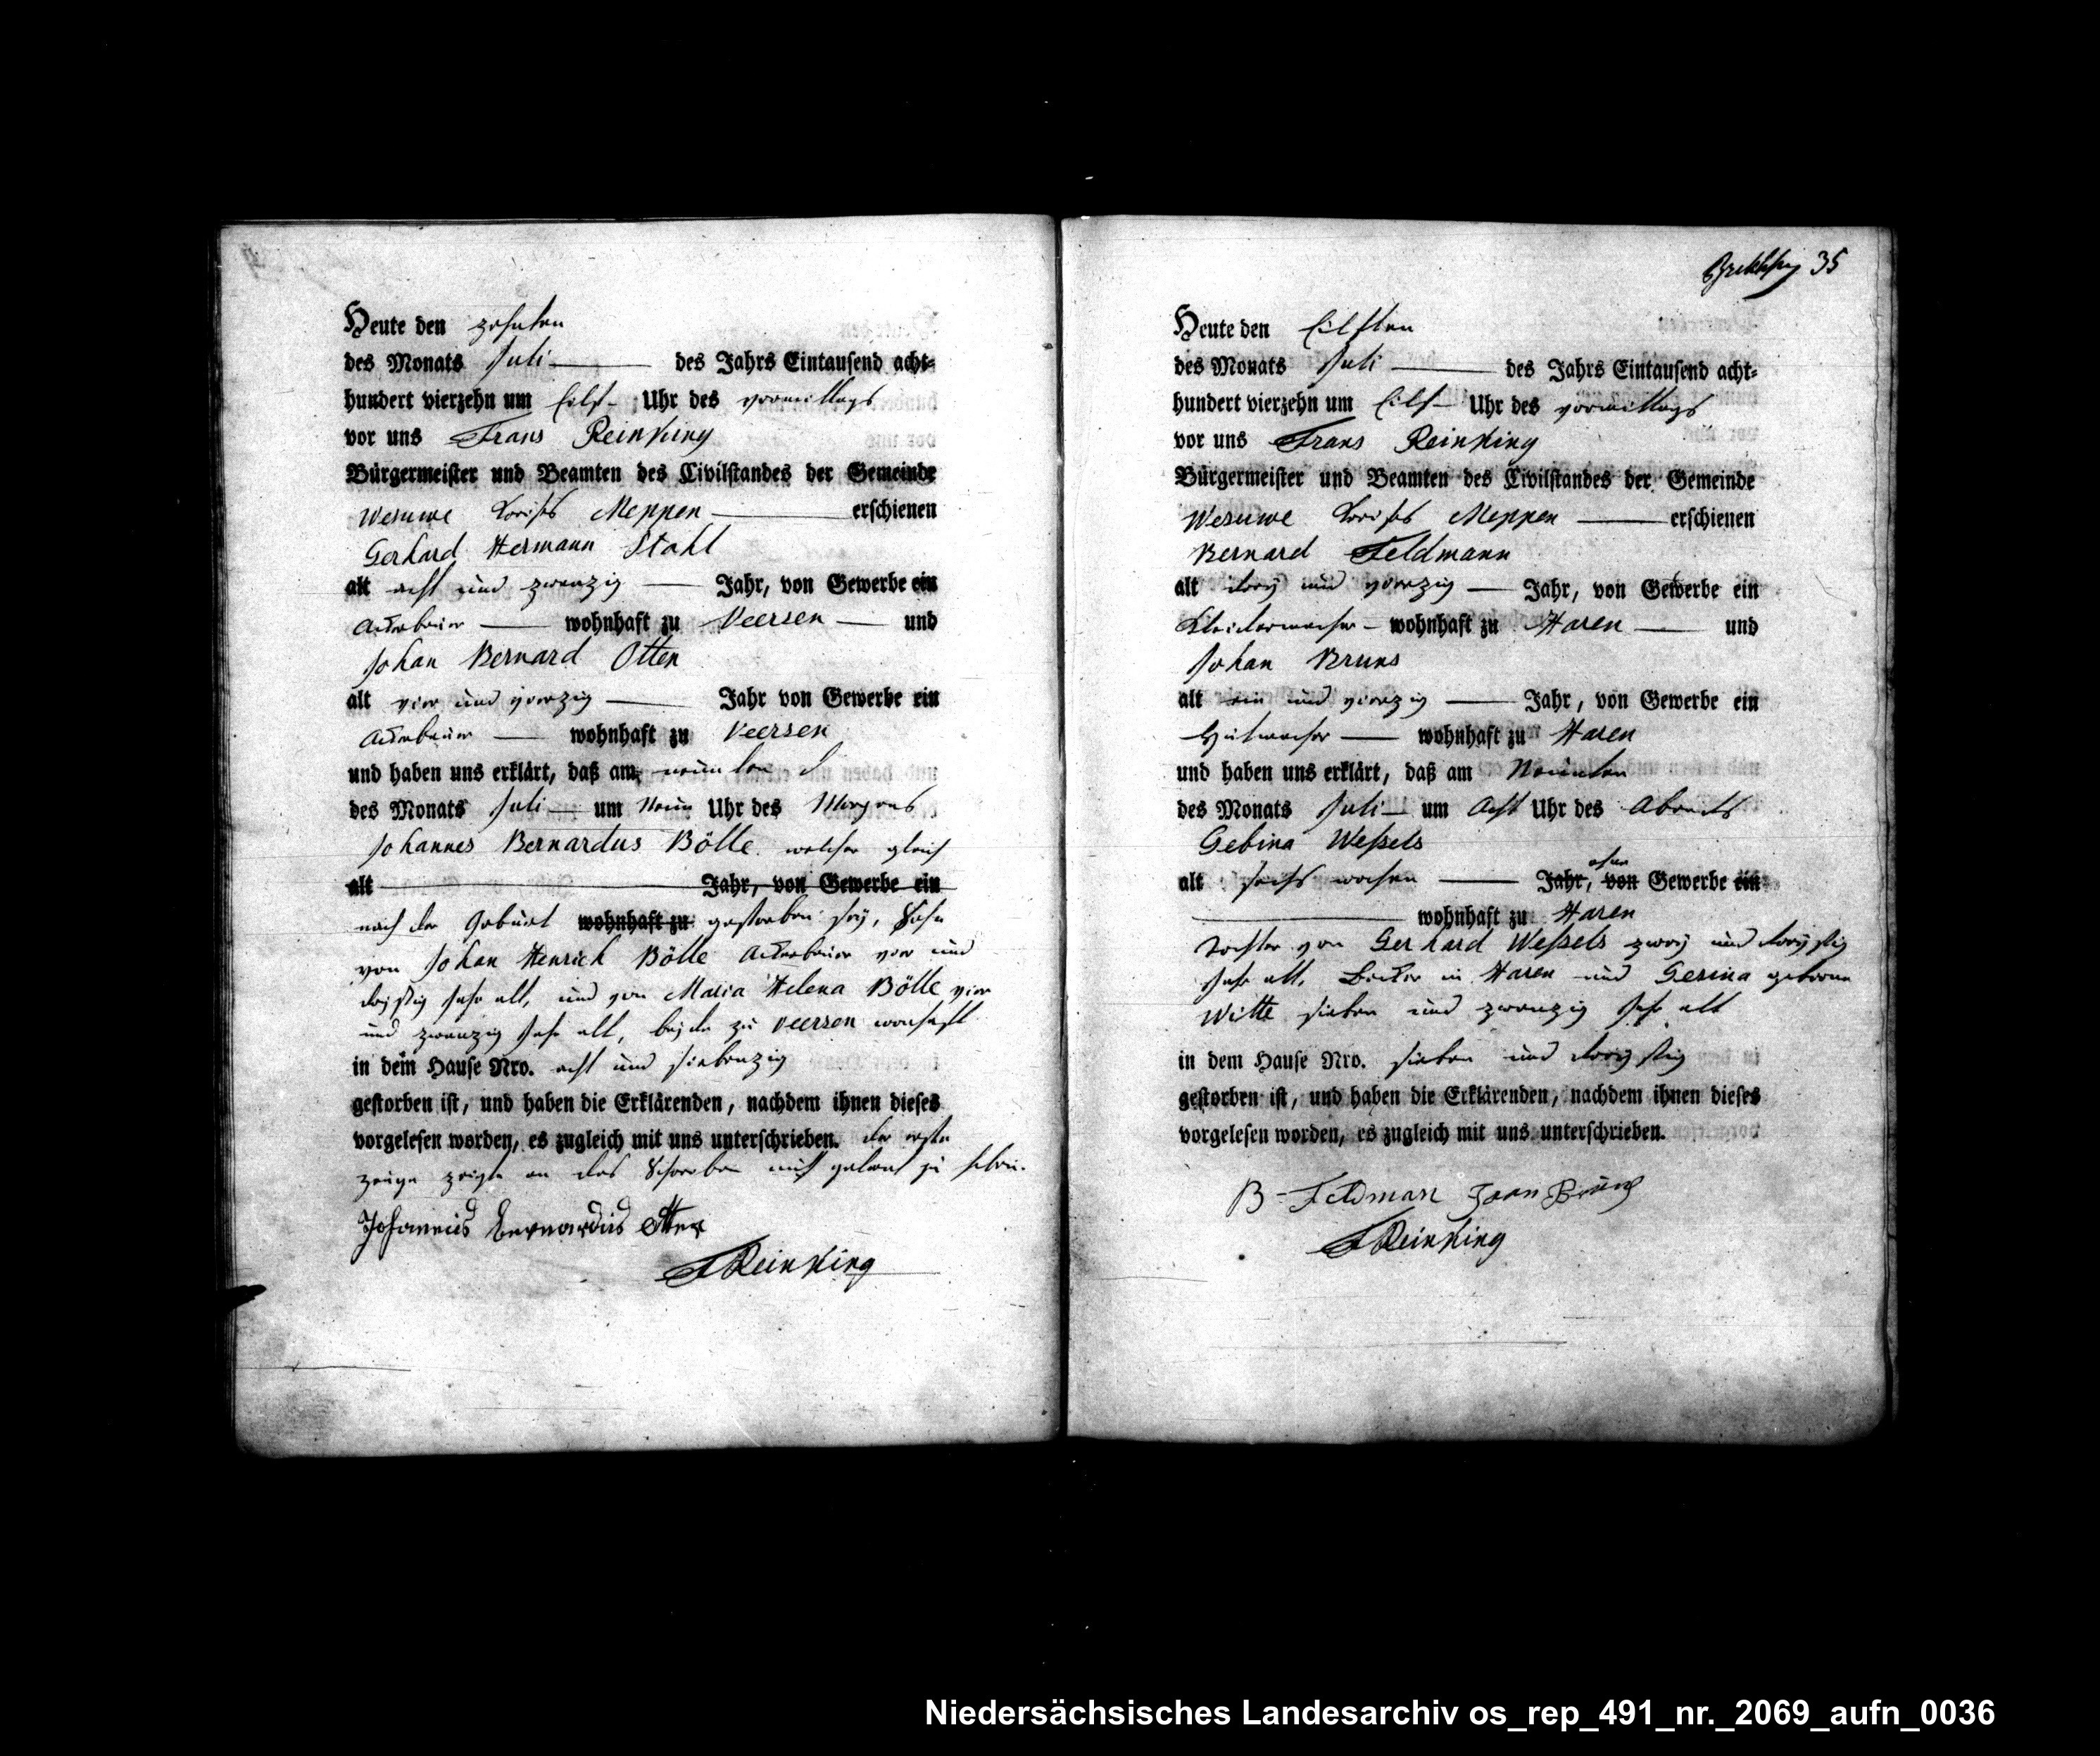 Heute den zehnten
des Monats Juli des Jahrs Eintausend acht-
hundert vierzehn um Eilf Uhr des vormittags
vor uns Frans Reinking
Bürgermeister und Beamten des Civilstandes der Gemeinde
Wesuwe Kreises Meppen erschienen
Gerhard Hermann Stahl
alt acht und zwanzig Jahr, von Gewerbe ein
Ackerbauer wohnhaft zu Veersen und
Johan Bernard Otten
alt vier und vierzig Jahr von Gewerbe ein
Ackerbauer wohnhaft zu Veersen
und haben uns erklärt, daß am neunten
des Monats Juli um Neun Uhr des Morgens
Johannes Bernardus Bölle welcher gleich
alt Jahr, von Gewerbe ein
nach der Geburt wohnhaft zu gestorben sey, Sohn
von Johan Henrich Bölle Ackerbauer vier und
dreissig Jahr alt, und von Maria Helena Bölle vier
und zwanzig Jahr alt, beyde zu Veersen wonhaft
in dem Hause Nro. acht und siebenzig
gestorben ist, und haben die Erklärenden, nachdem ihnen dieses
vorgelesen worden, es zugleich mit uns unterschrieben. der erste
zeuge zeigte an das Schreiben nicht gelernt zu haben.
Johannes Bernardus Otten
F Reinking
35
Heute den Eilften
des Monats Juli des Jahrs Eintausend acht-
hundert vierzehn um Eilf Uhr des vormittags
vor uns Frans Reinking
Bürgermeister und Beamten des Civilstandes der Gemeinde
Wesuwe Kreises Meppen erschienen
Bernard Feldmann
alt drey und vierzig Jahr, von Gewerbe ein
Kleidermacher wohnhaft zu Haren und
Johan Bruns
alt ein und vierzig Jahr, von Gewerbe ein
Hutmacher wohnhaft zu Haren
und haben uns erklärt, daß am Neunten
des Monats Juli um Acht Uhr des Abends
Gebina Weßels
alt sechs wochen Jahr, von ohne Gewerbe ein
wohnhaft zu Haren
Tochter von Gerhard Weßels zwey und dreyssig
Jahr alt, Becker in Haren und Gesina geborne
Witte sieben und zwanzig Jahr alt
in dem Hause Nro. sieben und dreyssig
gestorben ist, und haben die Erklärenden, nachdem ihnen dieses
vorgelesen worden, es zugleich mit uns unterschrieben.
B Feldman Joan Bruns
F Reinking
Niedersächsisches Landesarchiv os_rep_491_nr._2069_aufn_0036